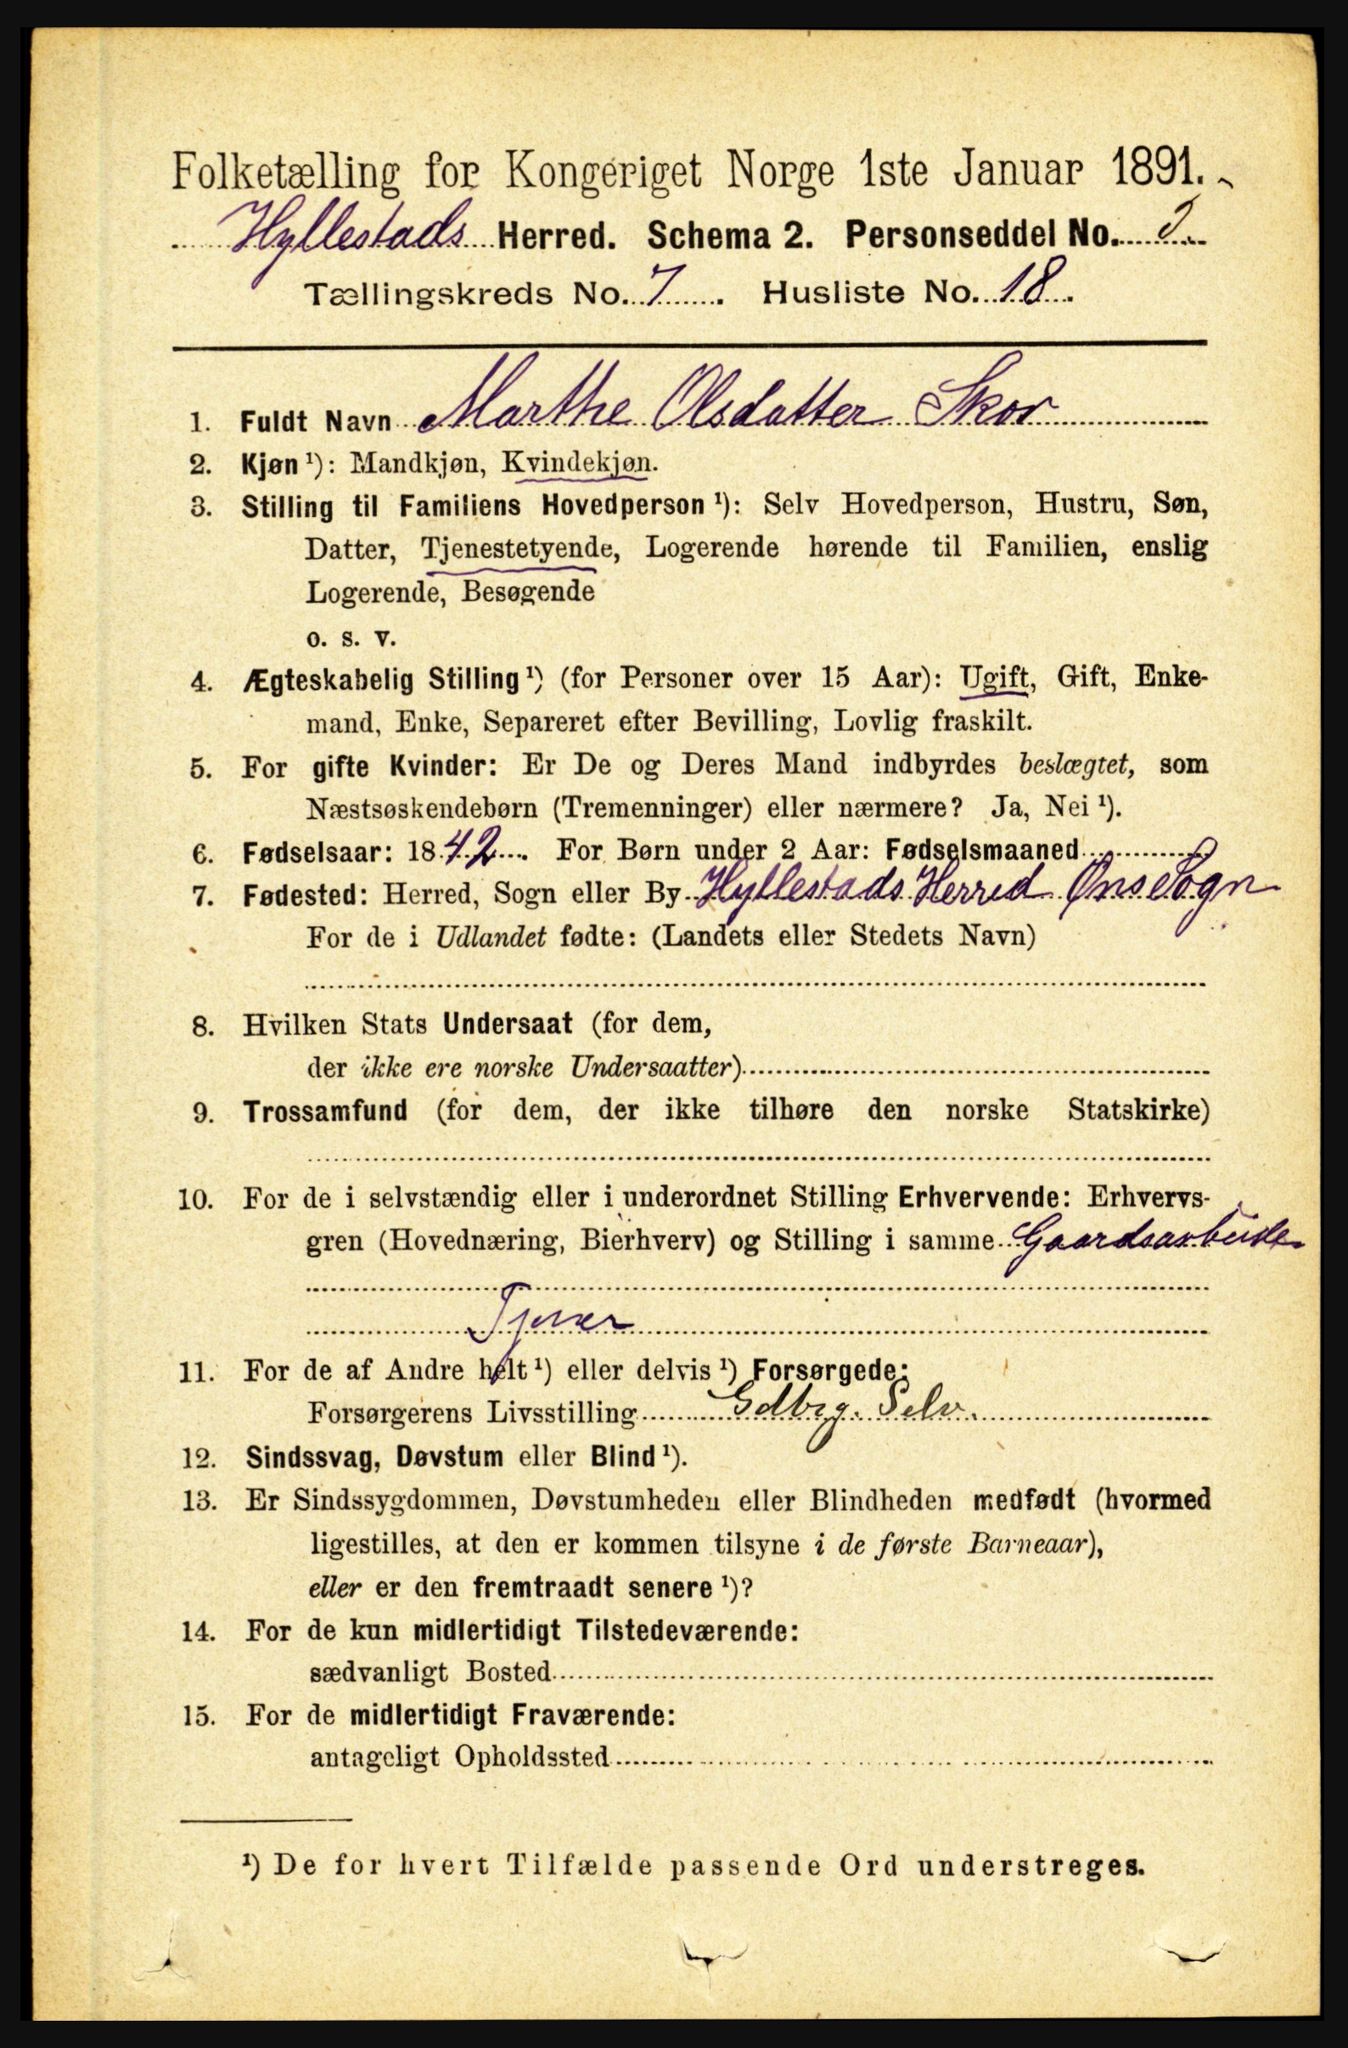 Folketælling for Kongeriget Norge 1ste Januar 1891.
Hyllestads Herred. Schema 2. Personseddel No.
Tællingskreds No. 7. Husliste No. 18.
1. Fuldt Navn Marthe Olsdatter Skor
2. Kjøn ¹): Mandkjøn, Kvindekjøn.
3. Stilling til Familiens Hovedperson ¹): Selv Hovedperson, Hustru, Søn,
Datter, Tjenestetyende, Logerende hørende til Familien, enslig
Logerende, Besøgende
o. s. v.
4. Ægteskabelig Stilling ¹) (for Personer over 15 Aar): Ugift, Gift, Enke-
mand, Enke, Separeret efter Bevilling, Lovlig fraskilt.
5. For gifte Kvinder: Er De og Deres Mand indbyrdes beslægtet, som
Næstsøskendebørn (Tremenninger) eller nærmere? Ja, Nei ¹).
6. Fødselsaar: 1842. For Børn under 2 Aar: Fødselsmaaned
7. Fødested: Herred, Sogn eller By Hyllestads Herred Øns Sogn
For de i Udlandet fødte: (Landets eller Stedets Navn)
8. Hvilken Stats Undersaat (for dem,
der ikke ere norske Undersaatter)
9. Trossamfund (for dem, der ikke tilhøre den norske Statskirke)
10. For de i selvstændig eller i underordnet Stilling Erhvervende: Erhvervs-
gren (Hovednæring, Bierhverv) og Stilling i samme Gaardsarbeide
Tjener
11. For de af Andre helt ¹) eller delvis ¹) Forsørgede:
Forsørgerens Livsstilling Gdbrg. Selv.
12. Sindssvag, Døvstum eller Blind ¹).
13. Er Sindssygdommen, Døvstumheden eller Blindheden medfødt (hvormed
ligestilles, at den er kommen tilsyne i de første Barneaar),
eller er den fremtraadt senere ¹)?
14. For de kun midlertidigt Tilstedeværende:
sædvanligt Bosted
15. For de midlertidigt Fraværende:
antageligt Opholdssted
¹) De for hvert Tilfælde passende Ord understreges.